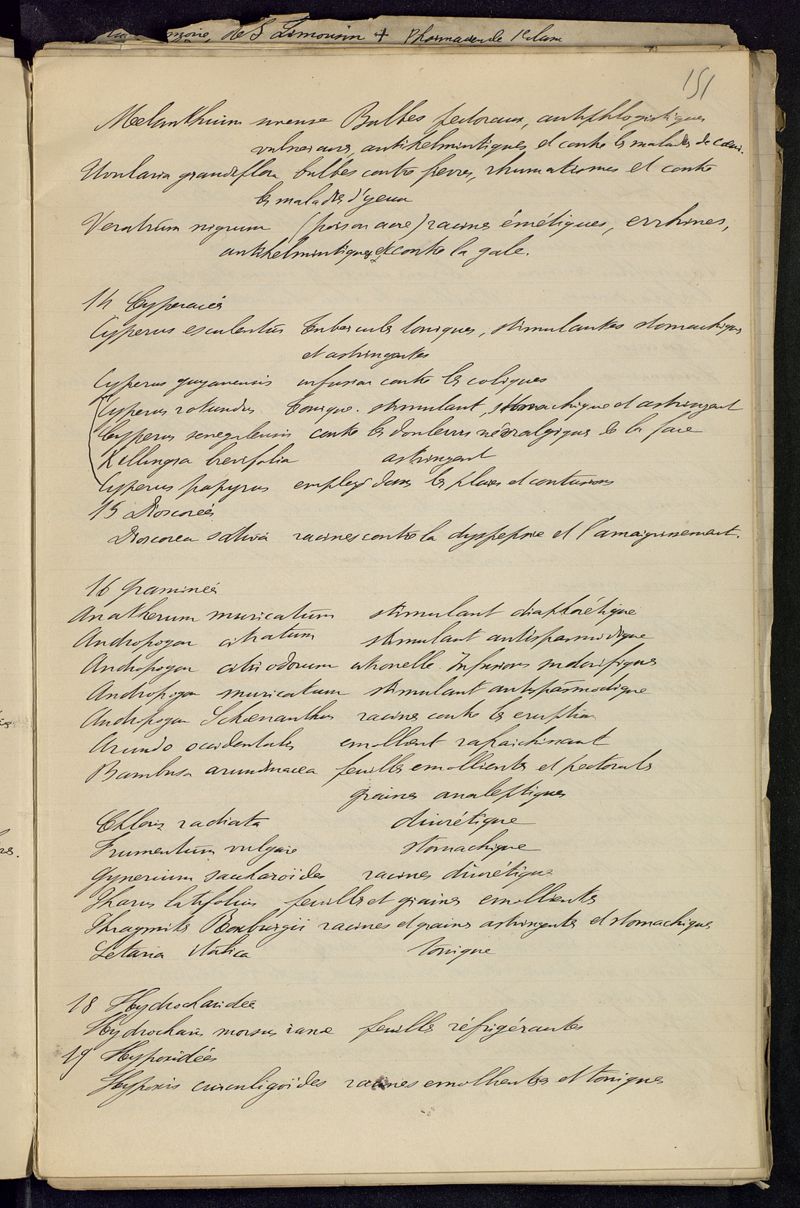 de S Limousin + Pharmacien de 1e classe
151
Melanthium sinense Bulbes pectoraux, antiphlogistiques
vulneraires, antihelmintiques et contre les maladies de cœur.
Uvularia grandiflora bulbes contre fievres, rhumatismes et contre
les maladies d'yeux
Veratrum nigrum (poison acre) racines émétiques, errhines,
antihelmintiques et contre la gale.
14 Cyperacées
Cyperus esculentus tubercules toniques, stimulantes stomachiques
et astringentes
Cyperus guyanensis infusion contre les coliques
Cyperus rotundus tonique. stimulant, stomachique et astringent
Cyperus senegalensis contre les douleurs névralgiques de la face
Killingia brevifolia astringent
Cyperus papyrus employé dans les plaies et contusions
15 Dioscorées
Dioscorea sativa racines contre la dyspepsie et l'amaigrissement.
16 Graminées
Anatherum muricatum stimulant diaphorétique
Andropogon citratum stimulant antispasmodique
Andropogon citriodorum citronelle Infusions sudorifiques
Andropogon muricatum stimulant antispasmodique
Andropogon Schœnanthus racines contre les eruptions
Arundo occidentalis emollient rafraichissant
Bambusa arundinacea feuilles emollientes et pectorales
graines analeptiques
Chloris radiata diurétique
Frumentum vulgare stomachique
Gynerium saccharoides racines diurétiques
Pharus latifolius feuilles et graines emollientes
Phragmites Roxburgii racines et graines astringentes et stomachiques
Setaria Italica tonique
18 Hydrocharidées
Hydrocharis morsus ranæ feuilles réfrigérantes
19 Hypoxidées
Hypoxis curculigoïdes racines emollientes et toniques